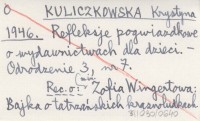 O KULICZKOWSKA Krystyna
1946. Refleksje pogwiazdkowe
o wydawnictwach dla dzieci. -
Odrodzenie 3, nr 7.
Rec. o: Zofia Wingertowa:
Bajka o tatrzańskich krasnoludkach